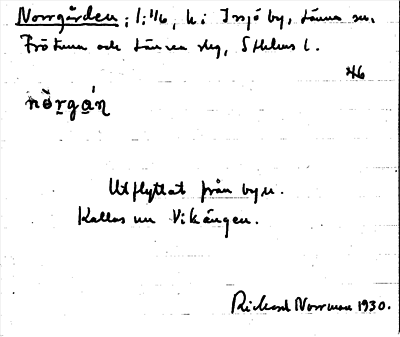 Norrgården, 1:46, h. i Insjö by, Länna sn.
Frötuna och Länna slg, Sthlms l.
46
nòrgán
Utflyttat från byn.
Kallas nu Vikängen.
Richard Norrman 1930.